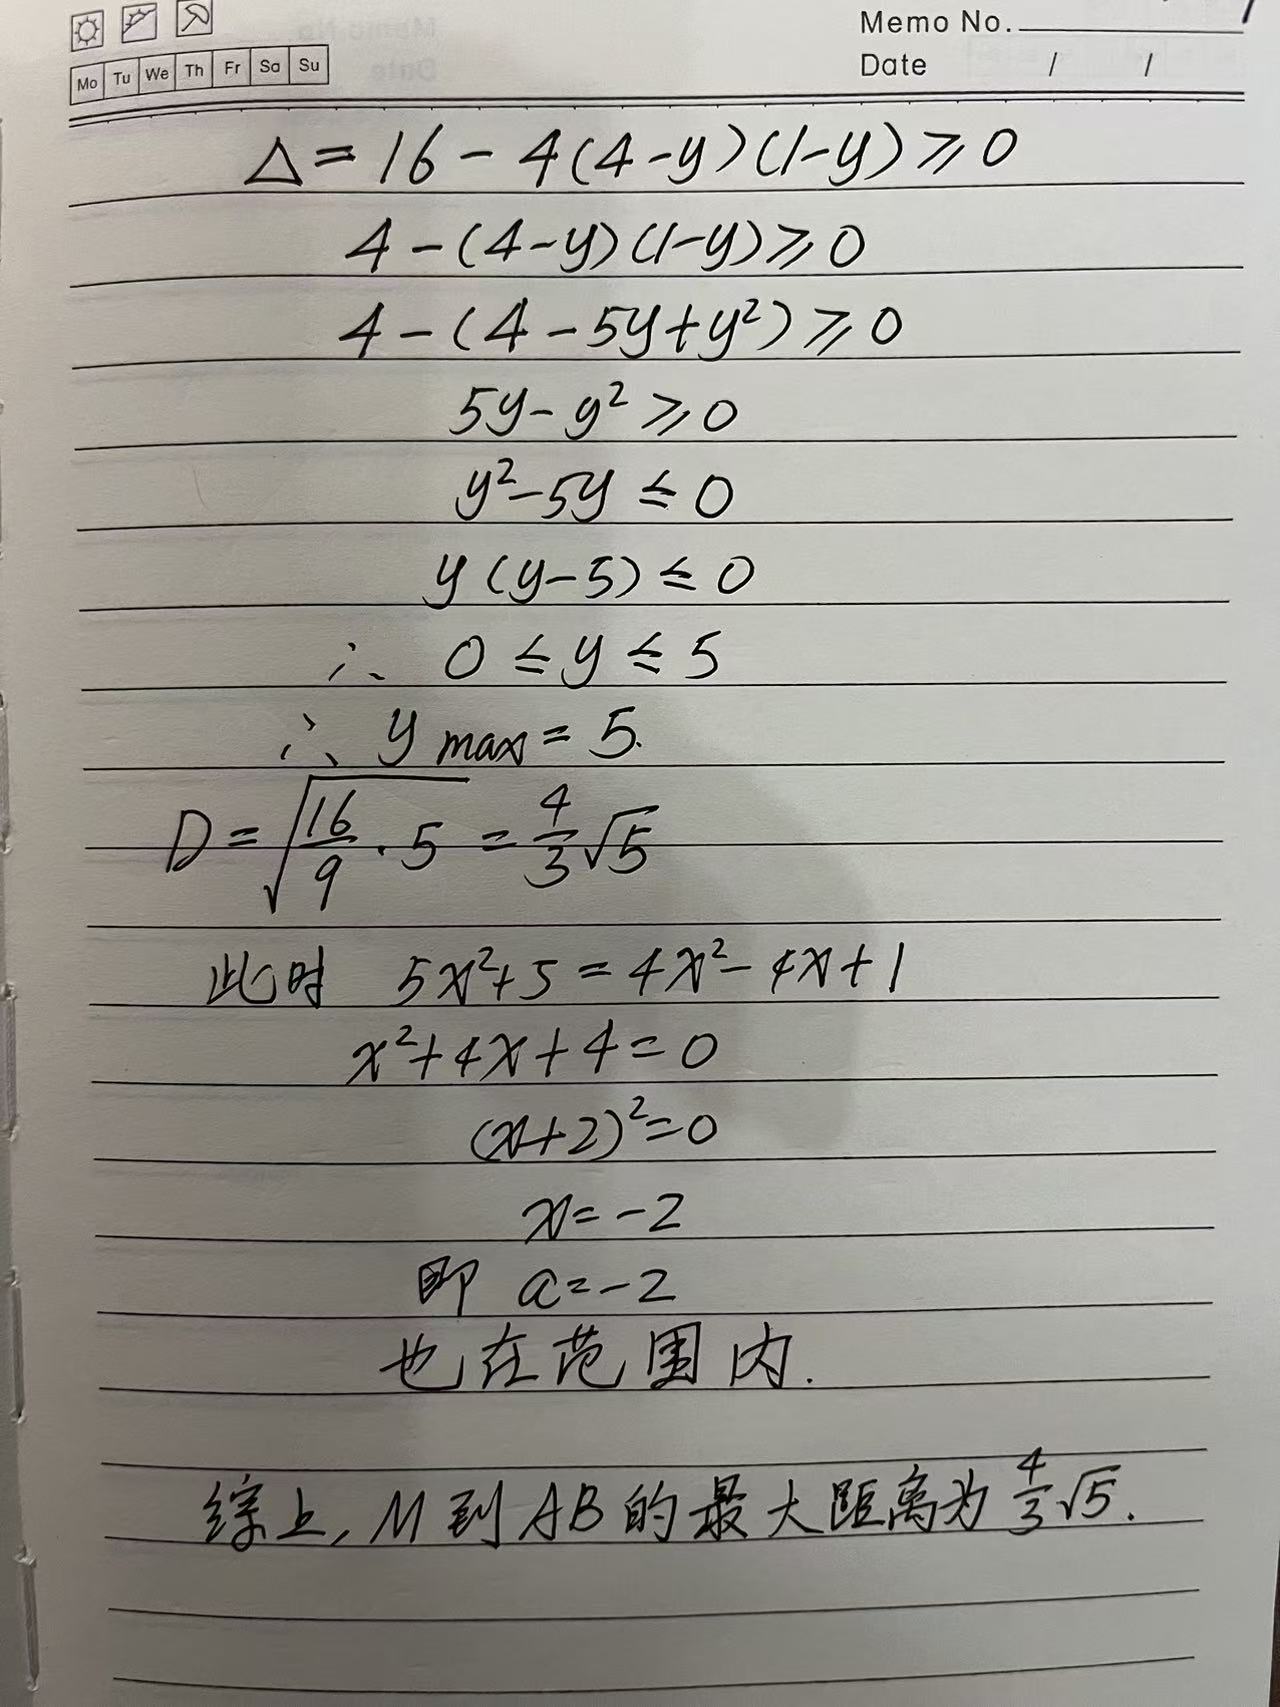 Memo No.
Mo Tu We Th Fr Sa Su
Date / /
Δ = 16 - 4(4-y)(1-y) ≥ 0
4 - (4-y)(1-y) ≥ 0
4 - (4 - 5y + y²) ≥ 0
5y - y² ≥ 0
y² - 5y ≤ 0
y(y-5) ≤ 0
∴ 0 ≤ y ≤ 5
∴ y max = 5.
D = √(16/9 · 5) = 4/3 √5
此时 5x² + 5 = 4x² - 4x + 1
x² + 4x + 4 = 0
(x+2)² = 0
x = -2
即 a = -2
也在范围内.
综上, M到AB的最大距离为 4/3 √5.